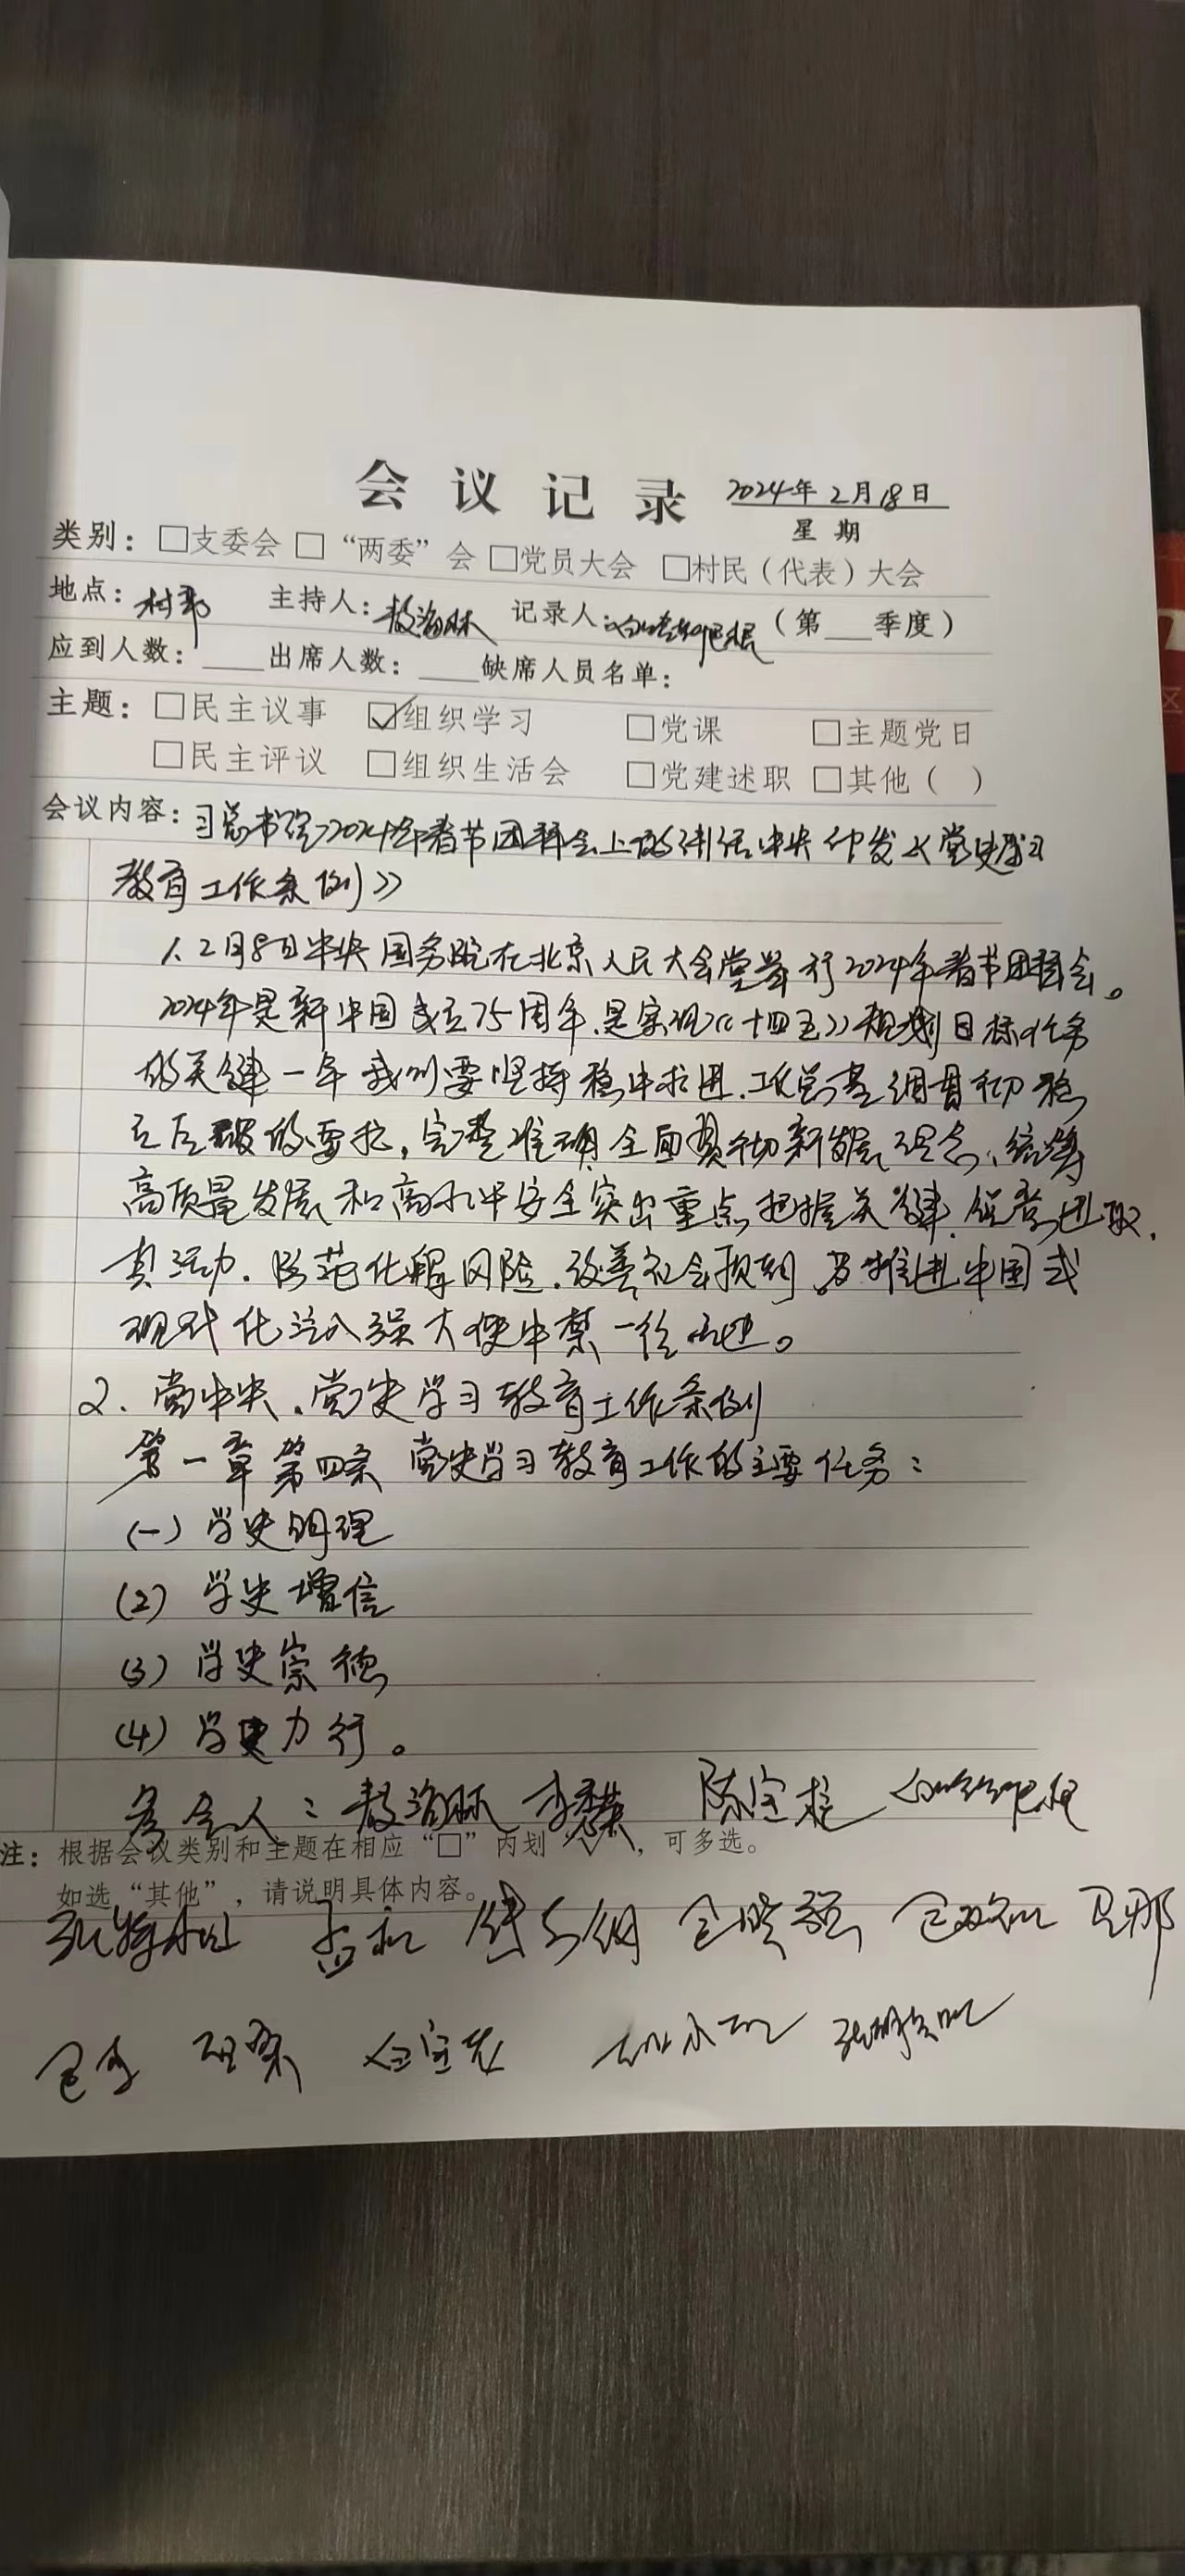 会议记录 2024年2月18日
星期
类别：□支委会 □“两委”会 □党员大会 □村民（代表）大会
地点：村部 主持人：敖海林 记录人：（第___季度）
应到人数：____出席人数：____缺席人员名单：
主题：□民主议事 ☑组织学习 □党课 □主题党日
□民主评议 □组织生活会 □党建述职 □其他（ ）
会议内容：习总书记2024年春节团拜会上的讲话中央印发《党史学习
教育工作条例》》
1、2月8日中央国务院在北京人民大会堂举行2024年春节团拜会。
2024年是新中国成立75周年、是实现《十四五》规划目标任务
的关键一年 我们要坚持稳中求进、工作总基调贯彻稳
立后破的要求，完整准确全面贯彻新发展理念、统筹
高质量发展和高水平安全突出重点把握关键、
活力、防范化解风险、改善社会预期、为推进中国式
现代化注入强大
2、党中央、党史学习教育工作条例
第一章第四条 党史学习教育工作的主要任务：
（一）学史明理
（2）学史增信
（3）学史崇德
（4）学史力行。
参会人：敖海林 陈宝柱
注：根据会议类别和主题在相应“□”内划，可多选。
如选“其他”，请说明具体内容。